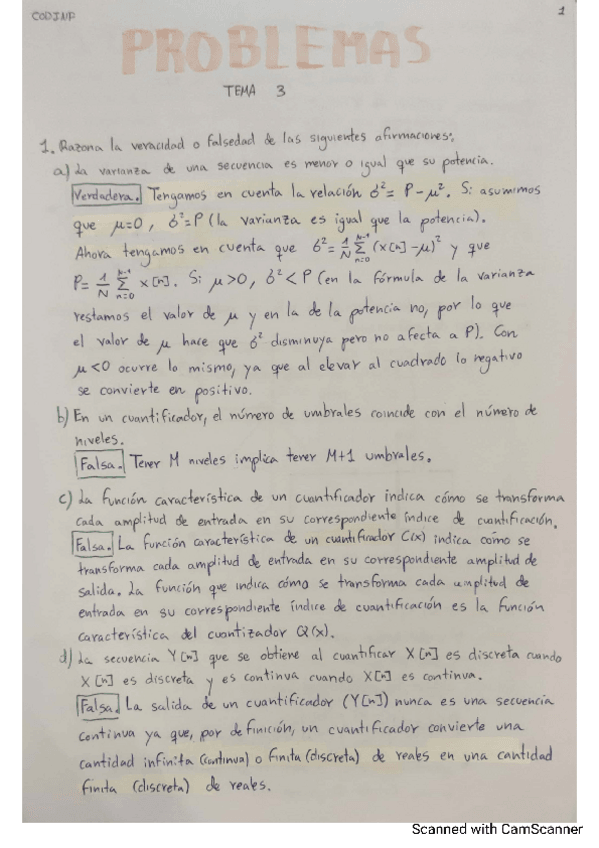 CODINF
1
PROBLEMAS
TEMA 3
1. Razona la veracidad o falsedad de las siguientes afirmaciones:
a) La varianza de una secuencia es menor o igual que su potencia.
Verdadera. Tengamos en cuenta la relación σ²= P-μ². Si asumimos
que μ=0, σ²=P (la varianza es igual que la potencia).
Ahora tengamos en cuenta que σ²= 1/N Σ_{n=0}^{N-1} (x[n]-μ)² y que
P= 1/N Σ_{n=0}^{N-1} x[n]. Si μ>0, σ²<P (en la fórmula de la varianza
restamos el valor de μ y en la de la potencia no, por lo que
el valor de μ hace que σ² disminuya pero no afecta a P). Con
μ<0 ocurre lo mismo, ya que al elevar al cuadrado lo negativo
se convierte en positivo.
b) En un cuantificador, el número de umbrales coincide con el número de
niveles.
Falsa. Tener M niveles implica tener M+1 umbrales.
c) La función característica de un cuantificador indica cómo se transforma
cada amplitud de entrada en su correspondiente índice de cuantificación.
Falsa. La función característica de un cuantificador C(x) indica como se
transforma cada amplitud de entrada en su correspondiente amplitud de
salida. La función que indica cómo se transforma cada amplitud de
entrada en su correspondiente índice de cuantificación es la función
característica del cuantizador Q(x).
d) La secuencia Y[n] que se obtiene al cuantificar X[n] es discreta cuando
X[n] es discreta y es continua cuando X[n] es continua.
Falsa. La salida de un cuantificador (Y[n]) nunca es una secuencia
continua ya que, por definición, un cuantificador convierte una
cantidad infinita (continua) o finita (discreta) de reales en una cantidad
finita (discreta) de reales.
Scanned with CamScanner